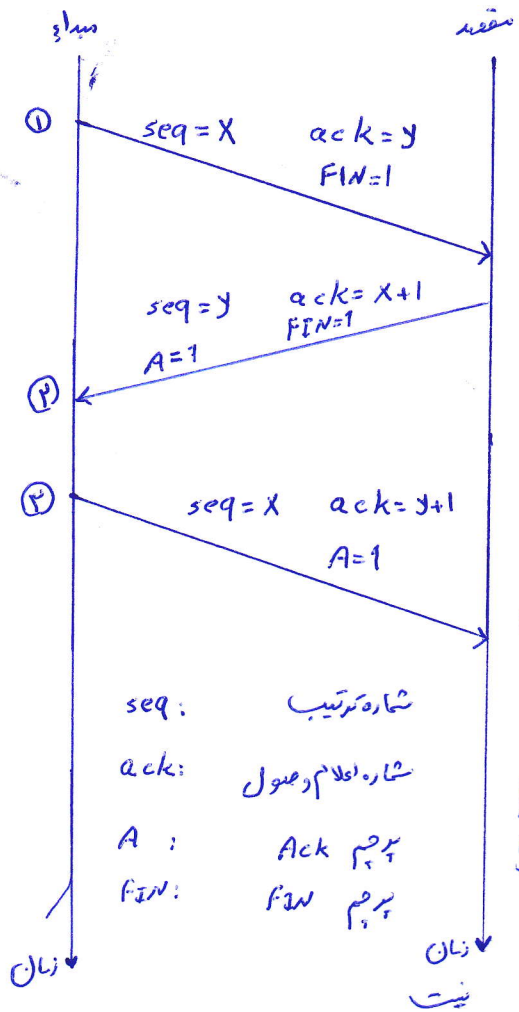 مبداء مقصد
① seq=X ack=y
FIN=1
seq=y ack=X+1
A=1 FIN=1
②
③ seq=X ack=y+1
A=1
seq: شماره ترتیب
ack: شماره اعلام وصول
A: پرچم Ack
FIN: پرچم FIN
زمان زمان
نیت